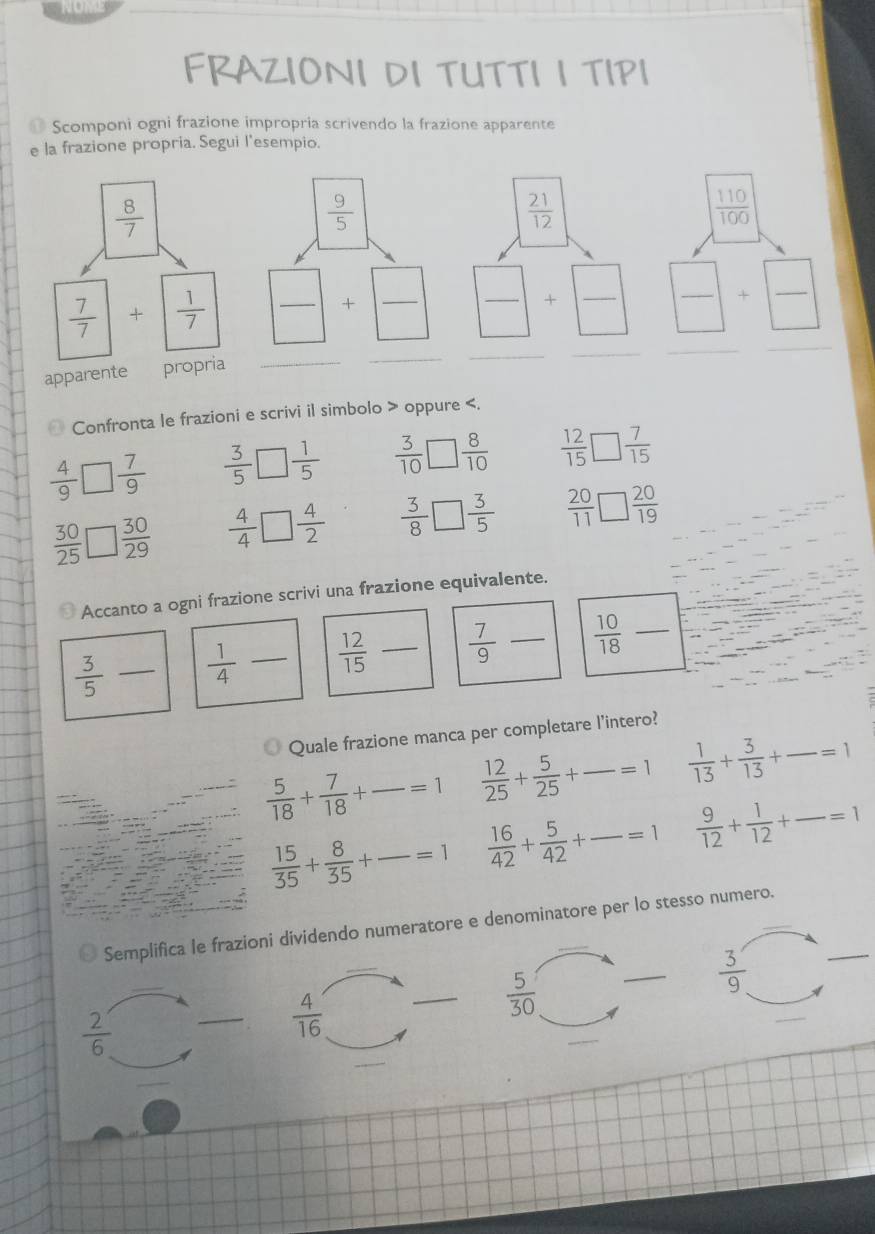 NOME
FRAZIONI DI TUTTI I TIPI
1 Scomponi ogni frazione impropria scrivendo la frazione apparente
e la frazione propria. Segui l'esempio.
8/7 9/5 21/12 110/100
7/7 + 1/7 — + — — + — — + —
apparente propria
Confronta le frazioni e scrivi il simbolo > oppure <.
4/9 □ 7/9 3/5 □ 1/5 3/10 □ 8/10 12/15 □ 7/15
30/25 □ 30/29 4/4 □ 4/2 3/8 □ 3/5 20/11 □ 20/19
Accanto a ogni frazione scrivi una frazione equivalente.
3/5 — 1/4 — 12/15 — 7/9 — 10/18 —
Quale frazione manca per completare l'intero?
5/18 + 7/18 + — = 1 12/25 + 5/25 + — = 1 1/13 + 3/13 + — = 1
15/35 + 8/35 + — = 1 16/42 + 5/42 + — = 1 9/12 + 1/12 + — = 1
Semplifica le frazioni dividendo numeratore e denominatore per lo stesso numero.
2/6 — 4/16 — 5/30 — 3/9 —